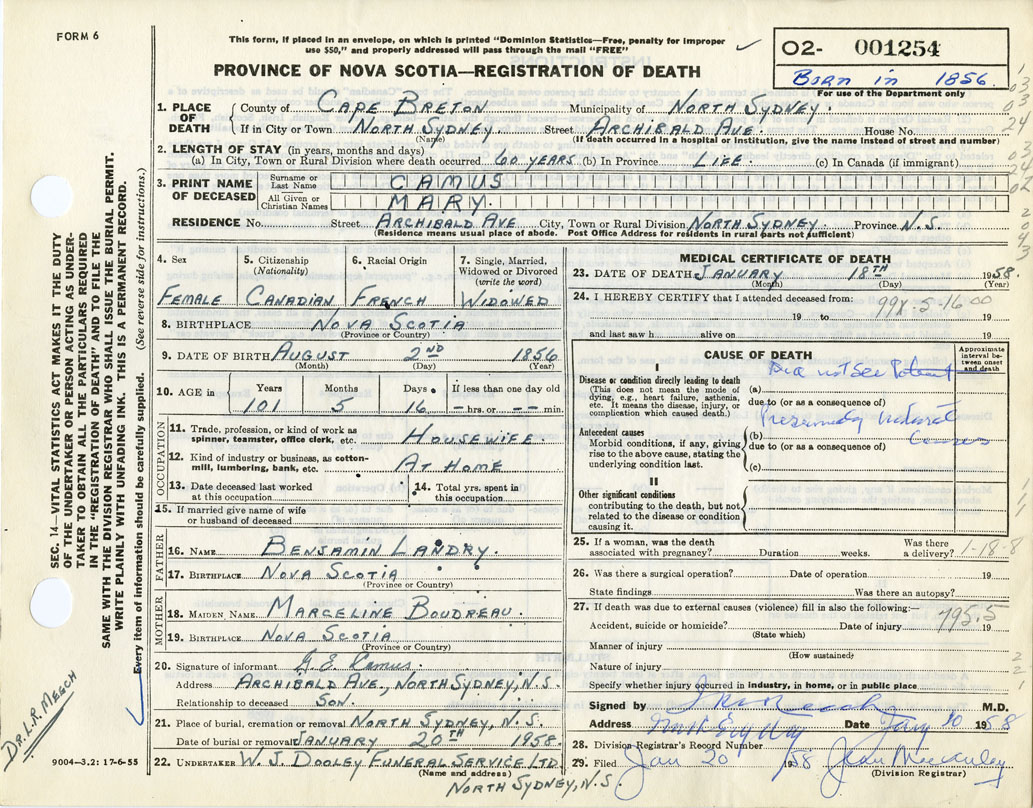 FORM 6
This form, if placed in an envelope, on which is printed "Dominion Statistics—Free, penalty for improper
use $50," and properly addressed will pass through the mail "FREE"
O2- 001254
Born in 1856.
For use of the Department only
PROVINCE OF NOVA SCOTIA—REGISTRATION OF DEATH
1. PLACE OF DEATH { County of CAPE BRETON Municipality of NORTH SYDNEY.
If in City or Town NORTH SYDNEY Street ARCHIBALD AVE. House No.
(Name) (If death occurred in a hospital or institution, give the name instead of street and number)
2. LENGTH OF STAY (in years, months and days)
(a) In City, Town or Rural Division where death occurred 60 YEARS (b) In Province LIFE. (c) In Canada (if immigrant)
3. PRINT NAME OF DECEASED { Surname or Last Name CAMUS
All Given or Christian Names MARY.
RESIDENCE No. Street ARCHIBALD AVE City, Town or Rural Division NORTH SYDNEY Province N.S.
(Residence means usual place of abode. Post Office Address for residents in rural parts not sufficient)
4. Sex
FEMALE
5. Citizenship
(Nationality)
CANADIAN
6. Racial Origin
FRENCH
7. Single, Married,
Widowed or Divorced
(write the word)
WIDOWED
8. BIRTHPLACE NOVA SCOTIA
(Province or Country)
9. DATE OF BIRTH AUGUST 2ND 1856
(Month) (Day) (Year)
10. AGE IN Years Months Days If less than one day old
101 5 16 — hrs. or -- min.
OCCUPATION
11. Trade, profession, or kind of work as
spinner, teamster, office clerk, etc. HOUSEWIFE.
12. Kind of industry or business, as cotton-
mill, lumbering, bank, etc. AT HOME
13. Date deceased last worked
at this occupation
14. Total yrs. spent in
this occupation
15. If married give name of wife
or husband of deceased
FATHER
16. NAME BENJAMIN LANDRY.
17. BIRTHPLACE NOVA SCOTIA
(Province or Country)
MOTHER
18. MAIDEN NAME MARCELINE BOUDREAU.
19. BIRTHPLACE NOVA SCOTIA
(Province or Country)
20. Signature of informant G. E. Camus.
Address ARCHIBALD AVE., NORTH SYDNEY, N.S.
Relationship to deceased SON.
21. Place of burial, cremation or removal NORTH SYDNEY, N.S.
Date of burial or removal JANUARY 20TH 1958.
22. UNDERTAKER W. J. DOOLEY FUNERAL SERVICE LTD.
(Name and address)
NORTH SYDNEY, N.S.
MEDICAL CERTIFICATE OF DEATH
23. DATE OF DEATH JANUARY 18TH 1958.
(Month) (Day) (Year)
24. I HEREBY CERTIFY that I attended deceased from: 99X-5-1600
19 to 19
and last saw h alive on 19
CAUSE OF DEATH
Approximate
interval be-
tween onset
and death
I
Disease or condition directly leading to death
(This does not mean the mode of
dying, e.g., heart failure, asthenia,
etc. It means the disease, injury, or
complication which caused death.)
Did not see Patient
(a)
due to (or as a consequence of)
Presumably natural
causes
Antecedent causes
Morbid conditions, if any, giving
rise to the above cause, stating the
underlying condition last.
(b)
due to (or as a consequence of)
(c)
II
Other significant conditions
contributing to the death, but not
related to the disease or condition
causing it.
25. If a woman, was the death
associated with pregnancy? Duration weeks. Was there
a delivery? 1-18-8
26. Was there a surgical operation? Date of operation 19
State findings Was there an autopsy?
27. If death was due to external causes (violence) fill in also the following:—
795.5
Accident, suicide or homicide? Date of injury 19
(State which)
Manner of injury
(How sustained)
Nature of injury
Specify whether injury occurred in industry, in home, or in public place
Signed by M.D.
Address North Sydney Date Jany 20 1958
28. Division Registrar's Record Number
29. Filed Jan 20 1958
(Division Registrar)
SEC. 14. VITAL STATISTICS ACT MAKES IT THE DUTY
OF THE UNDERTAKER OR PERSON ACTING AS UNDER-
TAKER TO OBTAIN ALL THE PARTICULARS REQUIRED
IN THE "REGISTRATION OF DEATH" AND TO FILE THE
SAME WITH THE DIVISION REGISTRAR WHO SHALL ISSUE THE BURIAL PERMIT.
WRITE PLAINLY WITH UNFADING INK. THIS IS A PERMANENT RECORD.
Every item of information should be carefully supplied. (See reverse side for instructions.)
DR. L.R. MEECH
9004—3.2: 17-6-55